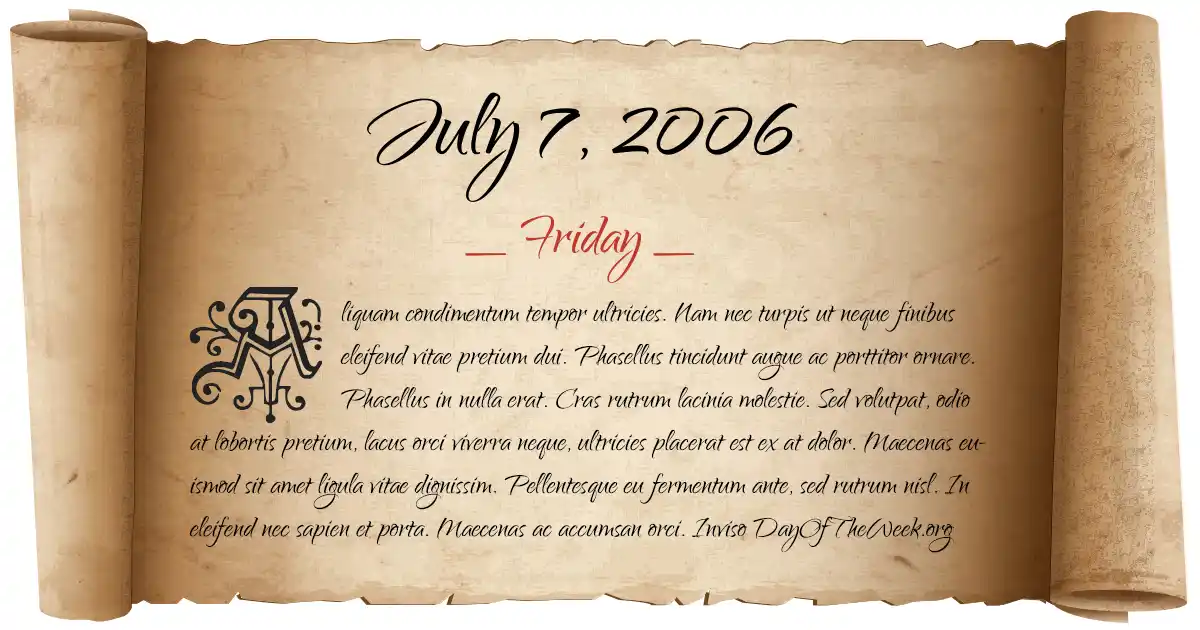 July 7, 2006
_ Friday _
Aliquam condimentum tempor ultricies. Nam nec turpis ut neque finibus
eleifend vitae pretium dui. Phasellus tincidunt augue ac porttitor ornare.
Phasellus in nulla erat. Cras rutrum lacinia molestie. Sed volutpat, odio
at lobortis pretium, lacus orci viverra neque, ultricies placerat est ex at dolor. Maecenas eu-
ismod sit amet ligula vitae dignissim. Pellentesque eu fermentum ante, sed rutrum nisl. In
eleifend nec sapien et porta. Maecenas ac accumsan orci. Inviso DayOfTheWeek.org